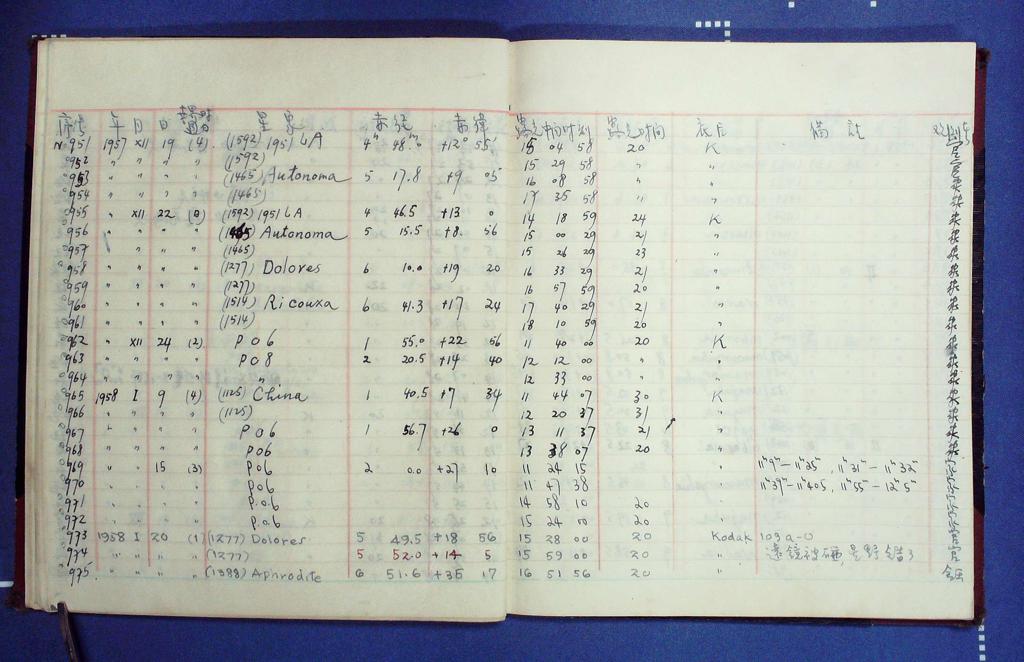 序号 年 月 日 星象 赤经 赤纬 露光中间时刻 露光时间 底片 备註
N°951 1957 XII 19 (4) (1592) 1951 LA 4h 48.m0 +12° 55' 15 04 58 20 K
952 " " " " (1592) 15 29 58 " "
953 " " " " (1465) Autonoma 5 17.8 +9 05 16 08 58 " "
954 " " " " (1465) 17 35 58 " "
955 " XII 22 (1592) 1951 LA 4 46.5 +13 0 14 18 59 24 K
956 " " " " Autonoma 5 15.5 +8 56 15 00 29 21 "
957 " " " " (1465) 15 26 29 23 "
958 " " " " (1277) Dolores 6 10.0 +19 20 16 33 29 21 "
959 " " " " (1277) 16 57 59 20 "
960 " " " " (1514) Ricouxa 6 41.3 +17 24 17 40 29 21 "
961 " " " " (1514) 18 10 59 20 "
962 " XII 24 (2) P06 1 55.0 +22 56 11 40 00 20 K
963 " " " " P08 2 20.5 +14 40 12 12 00 " "
964 " " " " " 12 33 00 " "
965 1958 I 9 (4) (1125) China 1 40.5 +7 34 11 44 07 30 K
966 " " " " (1125) 12 20 37 31 "
967 " " " " P06 1 56.7 +26 0 13 11 37 21 "
968 " " " " P06 13 38 07 20 "
969 " " 15 (3) P06 2 0.0 +27 10 11 24 15 " 11h9m—11h25m, 11h31m—11h32m
970 " " " " P06 11 47 38 " 11h39m—11h40.5, 11h55m—12h5m
971 " " " " P06 14 58 10 20
972 " " " " P06 15 24 00 20 "
973 1958 I 20 (1) (1277) Dolores 5 49.5 +18 56 15 28 00 20 Kodak 103a-O
974 " " " " (1277) 5 52.0 +14 5 15 59 00 20 " 远镜被碰,星野错了
975 " " " " (1388) Aphrodite 6 51.6 +35 17 16 51 56 20 "